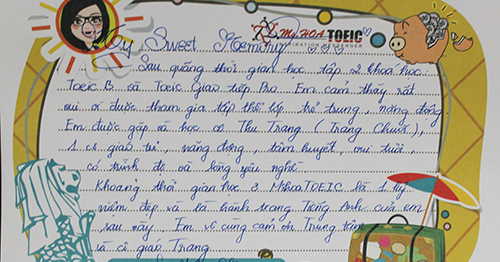 My Sweet Memory
Ms HOA TOEIC
INSPIRATION MESSENGER
Sau quãng thời gian học tập 2 khoá học:
Toeic B và Toeic Giao tiếp Pro. Em cảm thấy rất
vui vì được tham gia lớp thể lớp trẻ trung, năng động.
Em được gặp và học cô Thu Trang (Trang Chuối),
1 cô giáo trẻ, năng động, tâm huyết, vui tươi,
có trình độ và lòng yêu nghề
Khoảng thời gian học ở MsHoaTOEIC là 1 kỷ
niệm đẹp và là hành trang Tiếng Anh của em
sau này. Em vô cùng cảm ơn Trung tâm
và cô giáo Trang